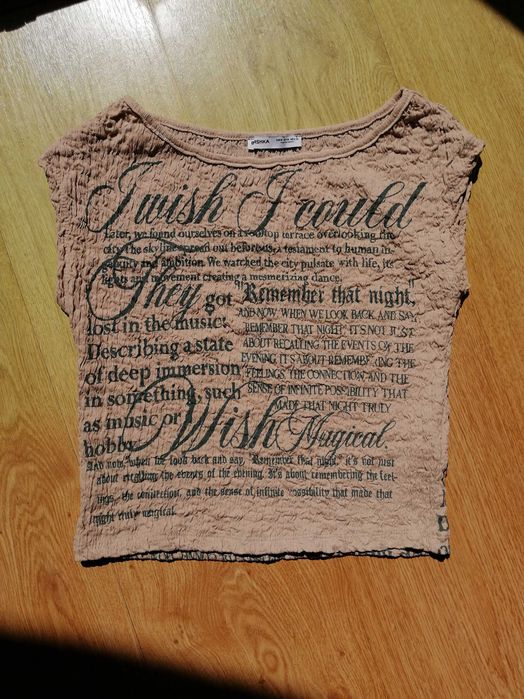 GISHKA
I wish I could
Later, we found ourselves on a rooftop terrace overlooking the
city. The skyline spread out before us, a testament to human in-
genuity and ambition. We watched the city pulsate with life, its
lights and movement creating a mesmerizing dance.
They got
lost in the music:
Describing a state
of deep immersion
in something, such
as music or
hobby.
"Remember that night,"
AND NOW, WHEN WE LOOK BACK AND SAY,
REMEMBER THAT NIGHT, IT'S NOT JUST
ABOUT RECALLING THE EVENTS OF THE
EVENING. IT'S ABOUT REMEMBERING THE
FEELINGS, THE CONNECTION, AND THE
SENSE OF INFINITE POSSIBILITY THAT
MADE THAT NIGHT TRULY
Wish Magical.
And now, when we look back and say, "Remember that night," it's not just
about recalling the events of the evening. It's about remembering the feel-
ings, the connection, and the sense of infinite possibility that made that
night truly magical.